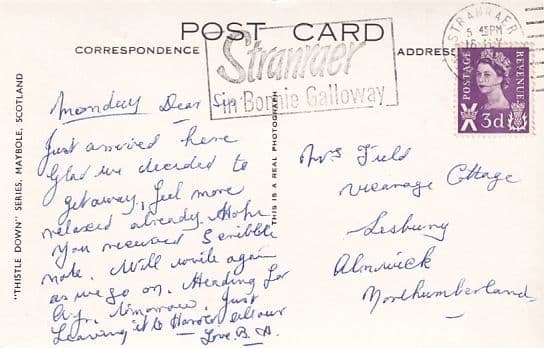 POST CARD
CORRESPONDENCE
ADDRESS
Stranraer
in Bonnie Galloway
STRANRAER
5 45PM
POSTAGE
REVENUE
3d
"THISTLE DOWN" SERIES, MAYBOLE, SCOTLAND
THIS IS A REAL PHOTOGRAPH
Monday Dear
Just arrived here
Glad we decided to
get away, feel more
relaxed already. Hope
you received Scribble
note. Will write again
as we go on. Heading for
Ayr, tomorrow, Just
Leaving it to Harold
Love. B.
Mrs Field
Vicarage Cottage
Lesbury
Alnwick
Northumberland